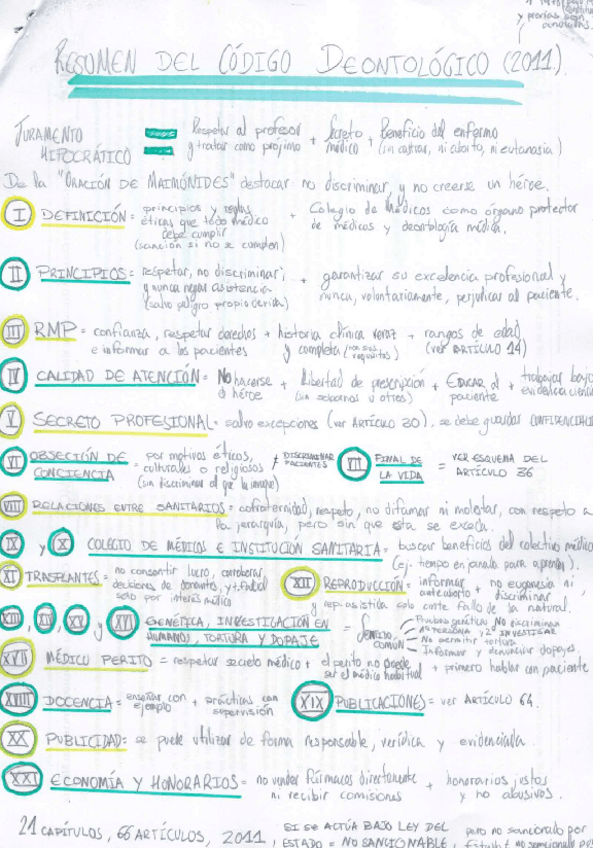 y
RESUMEN DEL CÓDIGO DEONTOLÓGICO (2011).
JURAMENTO HIPOCRÁTICO
Respetar al profesor y tratar como prójimo + Secreto médico + Beneficio del enfermo (sin castrar, ni aborto, ni eutanasia)
De la "ORACIÓN DE MAIMÓNIDES" destacar no discriminar, y no creerse un héroe.
I DEFINICIÓN = principios y reglas éticas que todo médico debe cumplir (sanción si no se cumplen) + Colegio de Médicos como órgano protector de médicos y deontología médica.
II PRINCIPIOS = respetar, no discriminar, y nunca negar asistencia (salvo peligro propia vida) + garantizar su excelencia profesional y nunca, voluntariamente, perjudicar al paciente.
III RMP = confianza, respetar derechos e informar a los pacientes + historia clínica veraz y completa + rangos de edad (ver ARTÍCULO 14)
IV CALIDAD DE ATENCIÓN = No hacerse el héroe + libertad de prescripción (sin sobornos u otros) + EDUCAR al paciente + trabajar bajo evidencia
V SECRETO PROFESIONAL = salvo excepciones (ver ARTÍCULO 30). se debe guardar
VI OBJECIÓN DE CONCIENCIA = por motivos éticos, culturales o religiosos (sin discriminar al que la invoque) ≠ DISCRIMINAR PACIENTES
VII FINAL DE LA VIDA = VER ESQUEMA DEL ARTÍCULO 36
VIII RELACIONES ENTRE SANITARIOS = cofraternidad, respeto, no difamar ni molestar, con respeto a la jerarquía, pero sin que esta se exceda.
IX y X COLEGIO DE MÉDICOS E INSTITUCIÓN SANITARIA = buscar beneficios del colectivo médico (ej. tiempo en jornada para aprender).
XI TRASPLANTES = no consentir lucro, corroborar decisiones de donante, solo por interés médico
XII REPRODUCCIÓN = informar + no eugenesia ni discriminar y rep. asistida solo ante fallo de la natural.
XIII, XIV, XV y XVI GENÉTICA, INVESTIGACIÓN EN HUMANOS, TORTURA Y DOPAJE = Sentido común
Pruebas genéticas NO discriminan
1º PERSONA y 2º INVESTIGAR
No permitir tortura
Informar y denunciar dopajes
XVII MÉDICO PERITO = respetar secreto médico + el perito no puede ser el médico habitual + primero hablar con paciente
XVIII DOCENCIA = enseñar con ejemplo + prácticas con supervisión
XIX PUBLICACIONES = ver ARTÍCULO 64.
XX PUBLICIDAD = se puede utilizar de forma responsable, verídica y evidenciada.
XXI ECONOMÍA Y HONORARIOS = no vender fármacos directamente ni recibir comisiones + honorarios justos y no abusivos.
21 CAPÍTULOS, 66 ARTÍCULOS, 2011, SI SE ACTÚA BAJO LEY DEL ESTADO = NO SANCIONABLE, pero no sancionado por